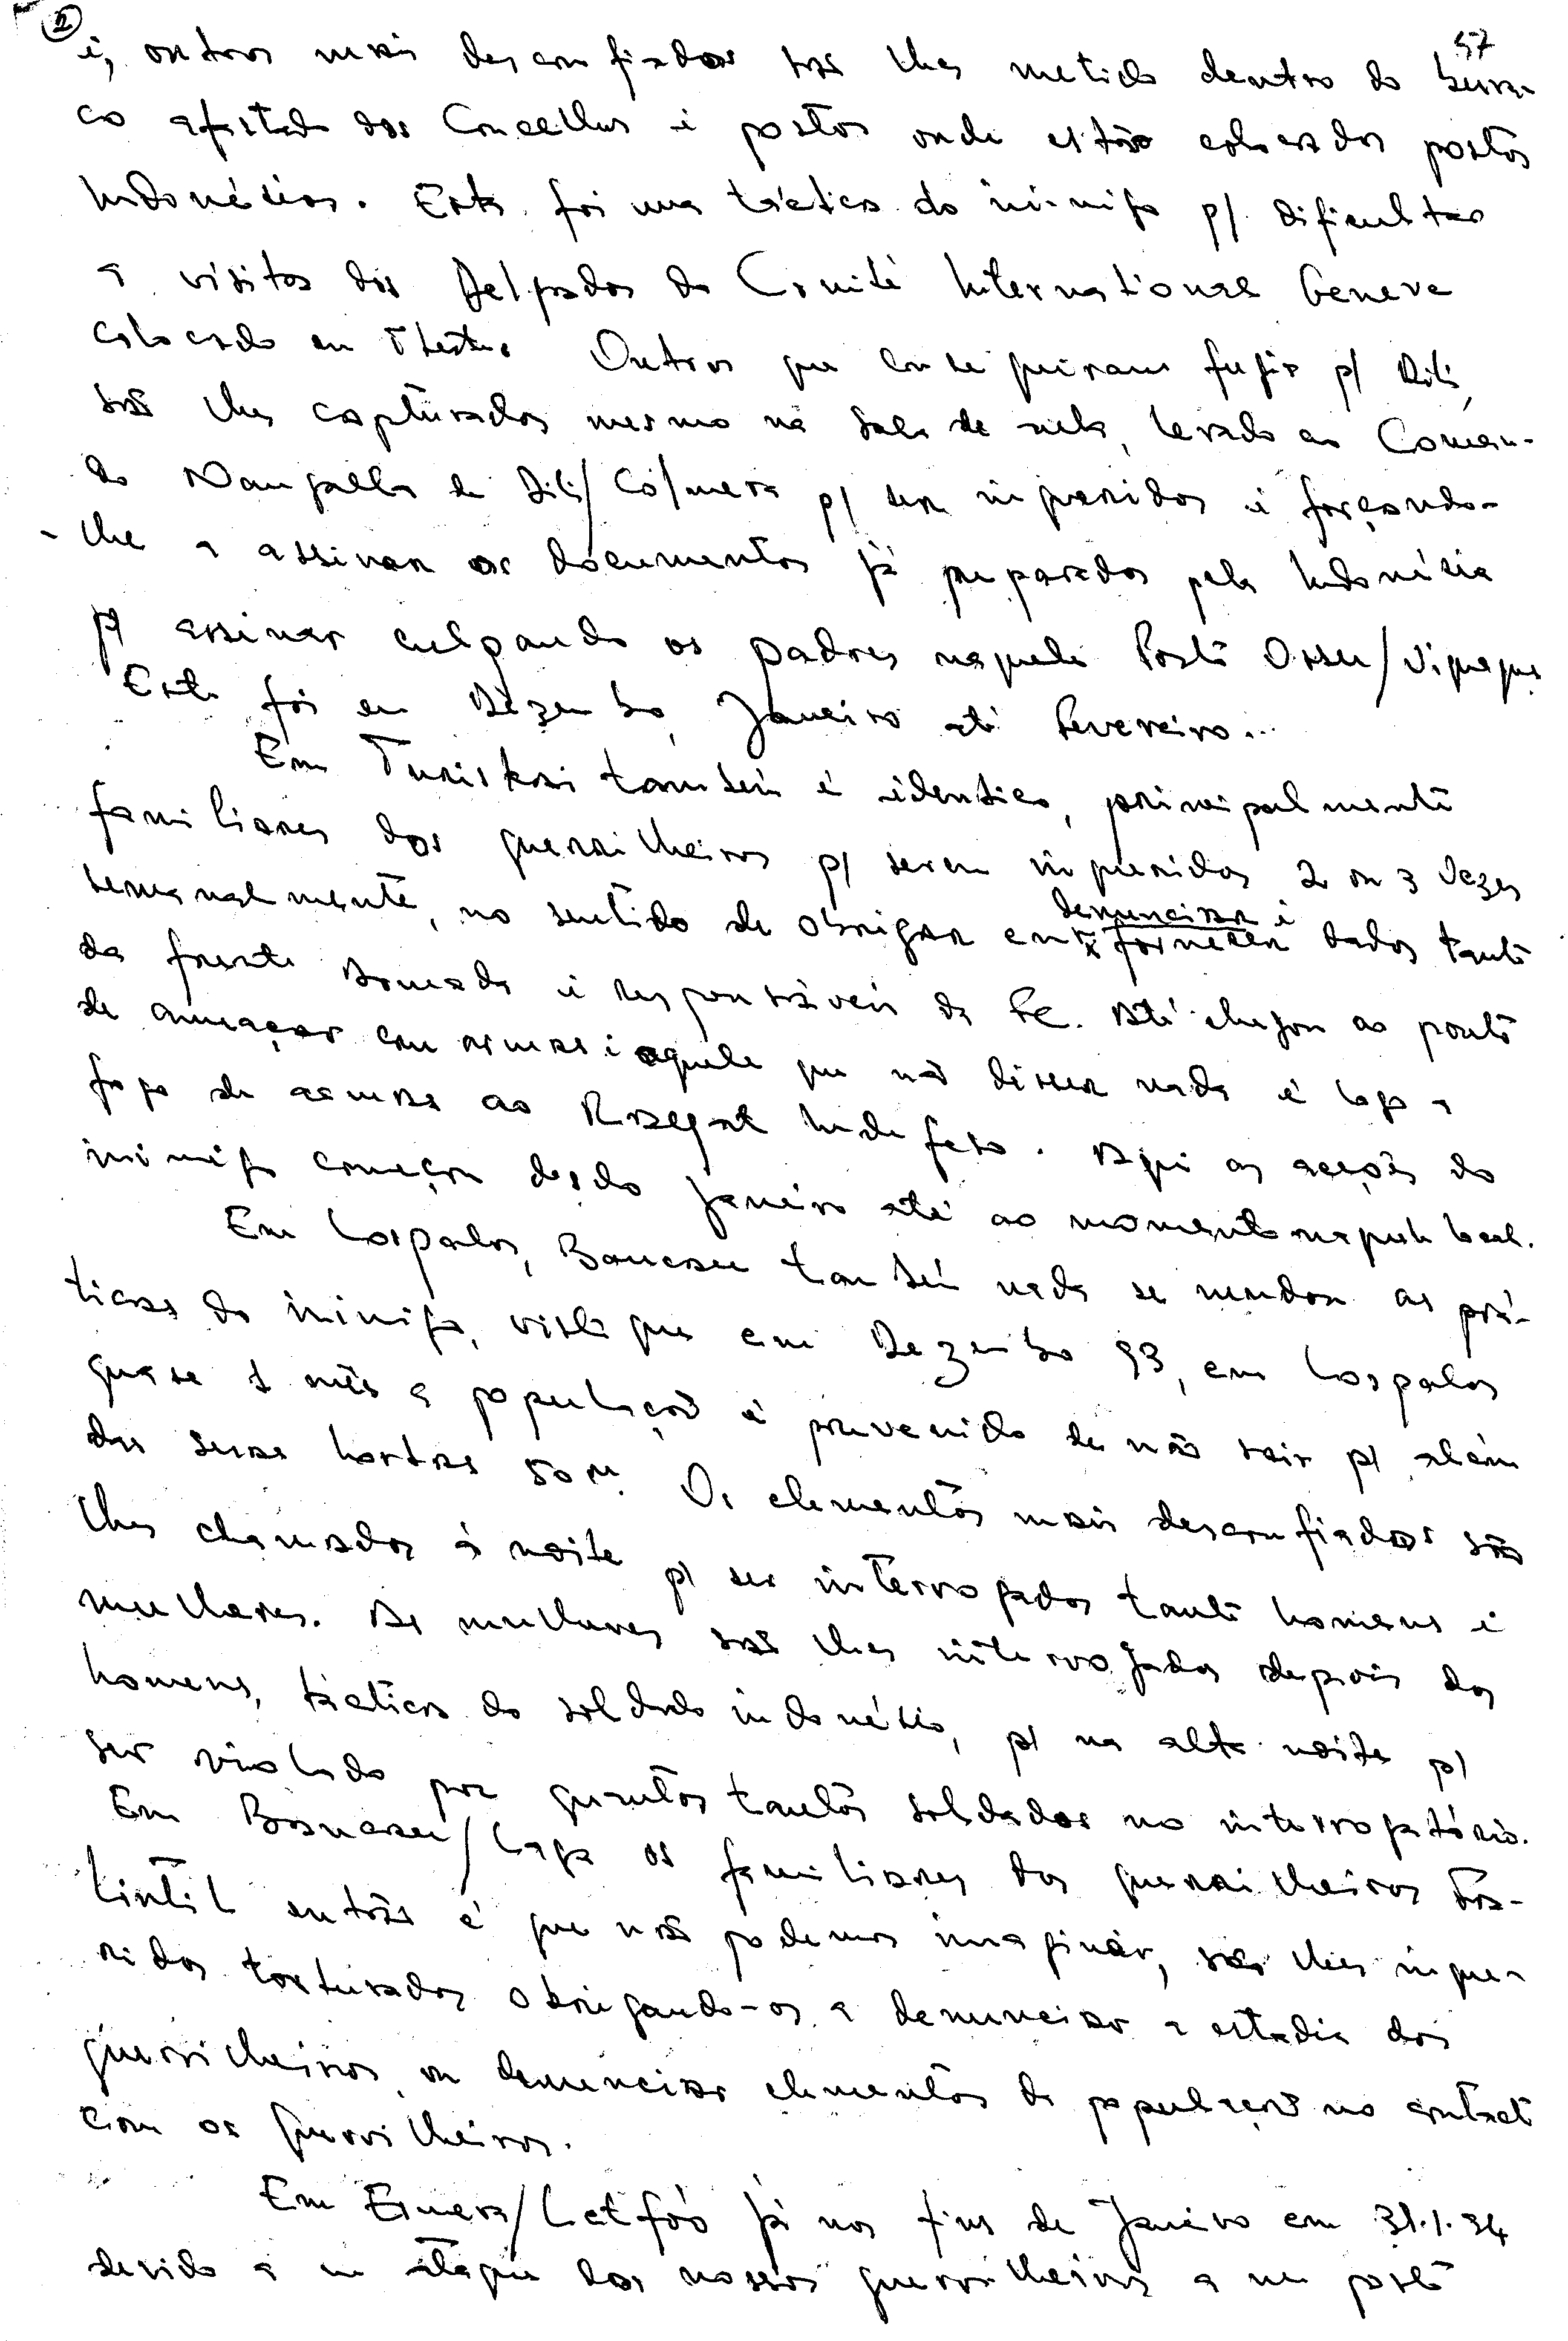 ② 57
é, outros mais desconfiados são lhes metido dentro do bura-
co afastado dos Concelhos e postos onde estão colocados postos
Indonésios. Esta foi uma táctica do inimigo p/ dificultar
a visitas dos Delgados do Comité International Geneve
colocado em Outros que conseguiram fugir p/ Dili,
são lhes capturados mesmo na Sala de visita, levado ao Coman-
do Nangalla de Dili/Cólmera p/ ser inqueridos e forçando-
-lhe a assinar os documentos já preparados pela Indonésia
p/ assinar culpando os padres naquele Posto Ossu/Viqueque
Este foi em Dezembo, Janeiro até Fevereiro...
Em Turiskai também é identico, principalmente
familiares dos guerrilheiros p/ serem inqueridos 2 ou 3 vezes
semanalmente, no sentido de obrigar em denunciar e fornecer dados tanto
da frente Armada e responsáveis da FC. Até chegou ao ponto
de ameaçar com armas e aquele que não disser nada é logo a
fogo de armas ao Rasegat . Aqui as acções do
inimigo começou desdo Janeiro até ao momento naquele local.
Em Lospalos, Baucau também nada se mudou as prá-
ticas do inimigo, visto que em Dezembo 93, em Lospalos
quase 1 mês a população é prevenido de não sair p/ além
das suas hortas 50 m. Os elementos mais desconfiados são
lhes chamados à noite p/ ser interrogados tanto homens e
mulheres. As mulheres são lhes interrogadas depois dos
homens, tácticas do soldado indonésio, p/ na alta noite p/
ser violado por quantos tantos soldados no interrogatório.
Em Baucau/Laga os familiares dos guerrilheiros Fa-
lintil então é que não podemos imaginar, são lhes inque-
ridos torturados obrigando-os a denunciar a estadia dos
guerrilheiros, ou denunciar elementos da população no contacto
com os guerrilheiros.
Em Ermera/Letfóó já nos fins de Janeiro em 31.1.94
devido a um ataque dos nossos guerrilheiros a um posto